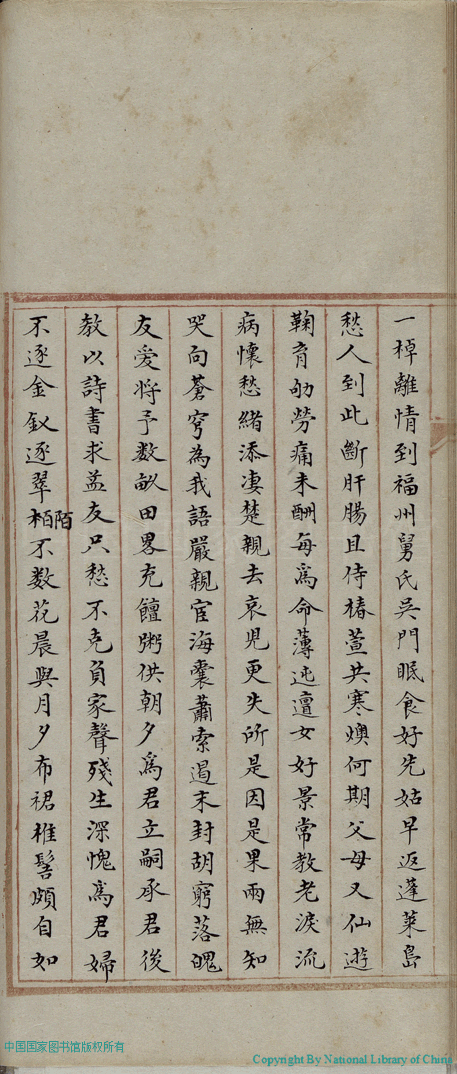 一棹離情到福州舅氏吳門眠食好先姑早返蓬萊島
愁人到此斷肝腸且侍椿萱共寒燠何期父母又仙遊
鞠育劬勞痛未酬每爲命薄迍邅女好景常教老淚流
病懷愁緒添淒楚親去哀兒更失所是因是果兩無知
哭向蒼穹為我語嚴親宦海囊蕭索遏末封胡窮落魄
友爱将予数畝田畧充饘粥供朝夕爲君立嗣承君後
教以詩書求益友只愁不克負家聲殘生深愧爲君婦
不逐金釵逐翠栢陌不数花晨與月夕布裙椎髻頗自如
中国国家图书馆版权所有
Copyright By National Library of China